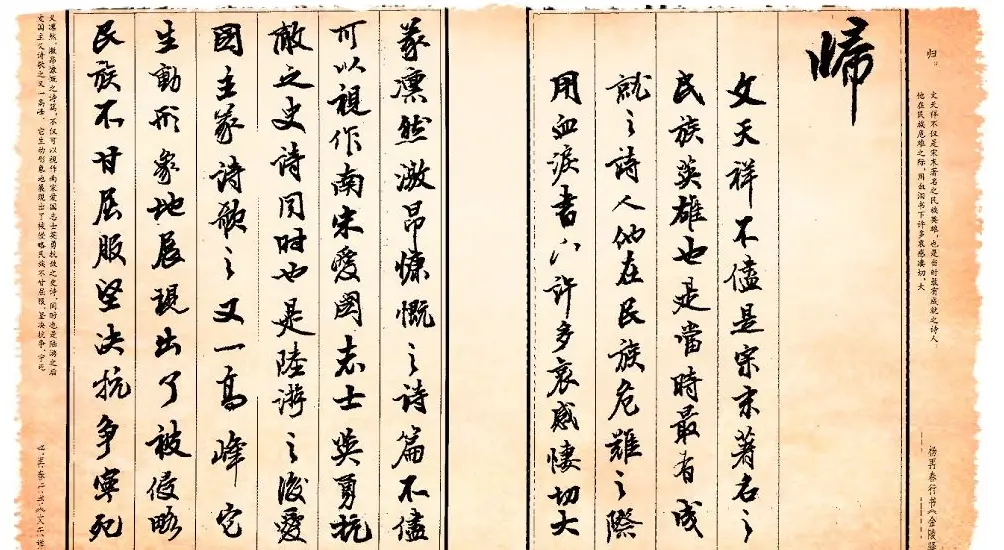 归。
文天祥不仅是宋末著名之民族英雄，也是当时最有成就之诗人，
他在民族危难之际，用血泪书下许多哀感凄切、大
杨再春行书《金陵驿
歸
文天祥不儘是宋末著名之
民族英雄也是當時最有成
就之诗人他在民族危難之際
用血淚書下许多哀感悽切大
義凛然激昂慷慨之诗篇不儘
可以視作南宋愛國志士英勇抗
敵之史诗同时也是陸游之後愛
國主義诗歌之又一高峰它
生動形象地展現出了被侵略
民族不甘屈服坚决抗争寧死
义凛然、激昂慷慨之诗篇，不仅可以视作南宋爱国志士英勇抗敌之史诗，同时也是陆游之后
爱国主义诗歌之又一高峰。它生动形象地展现出了被侵略民族不甘屈服、坚决抗争、宁死